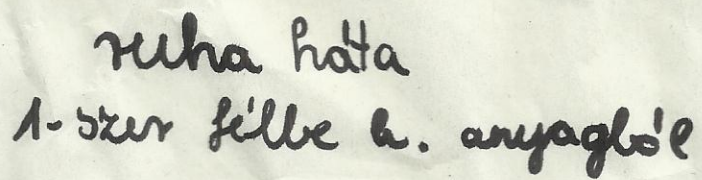 ruha háta
1-szer félbe h. anyagból